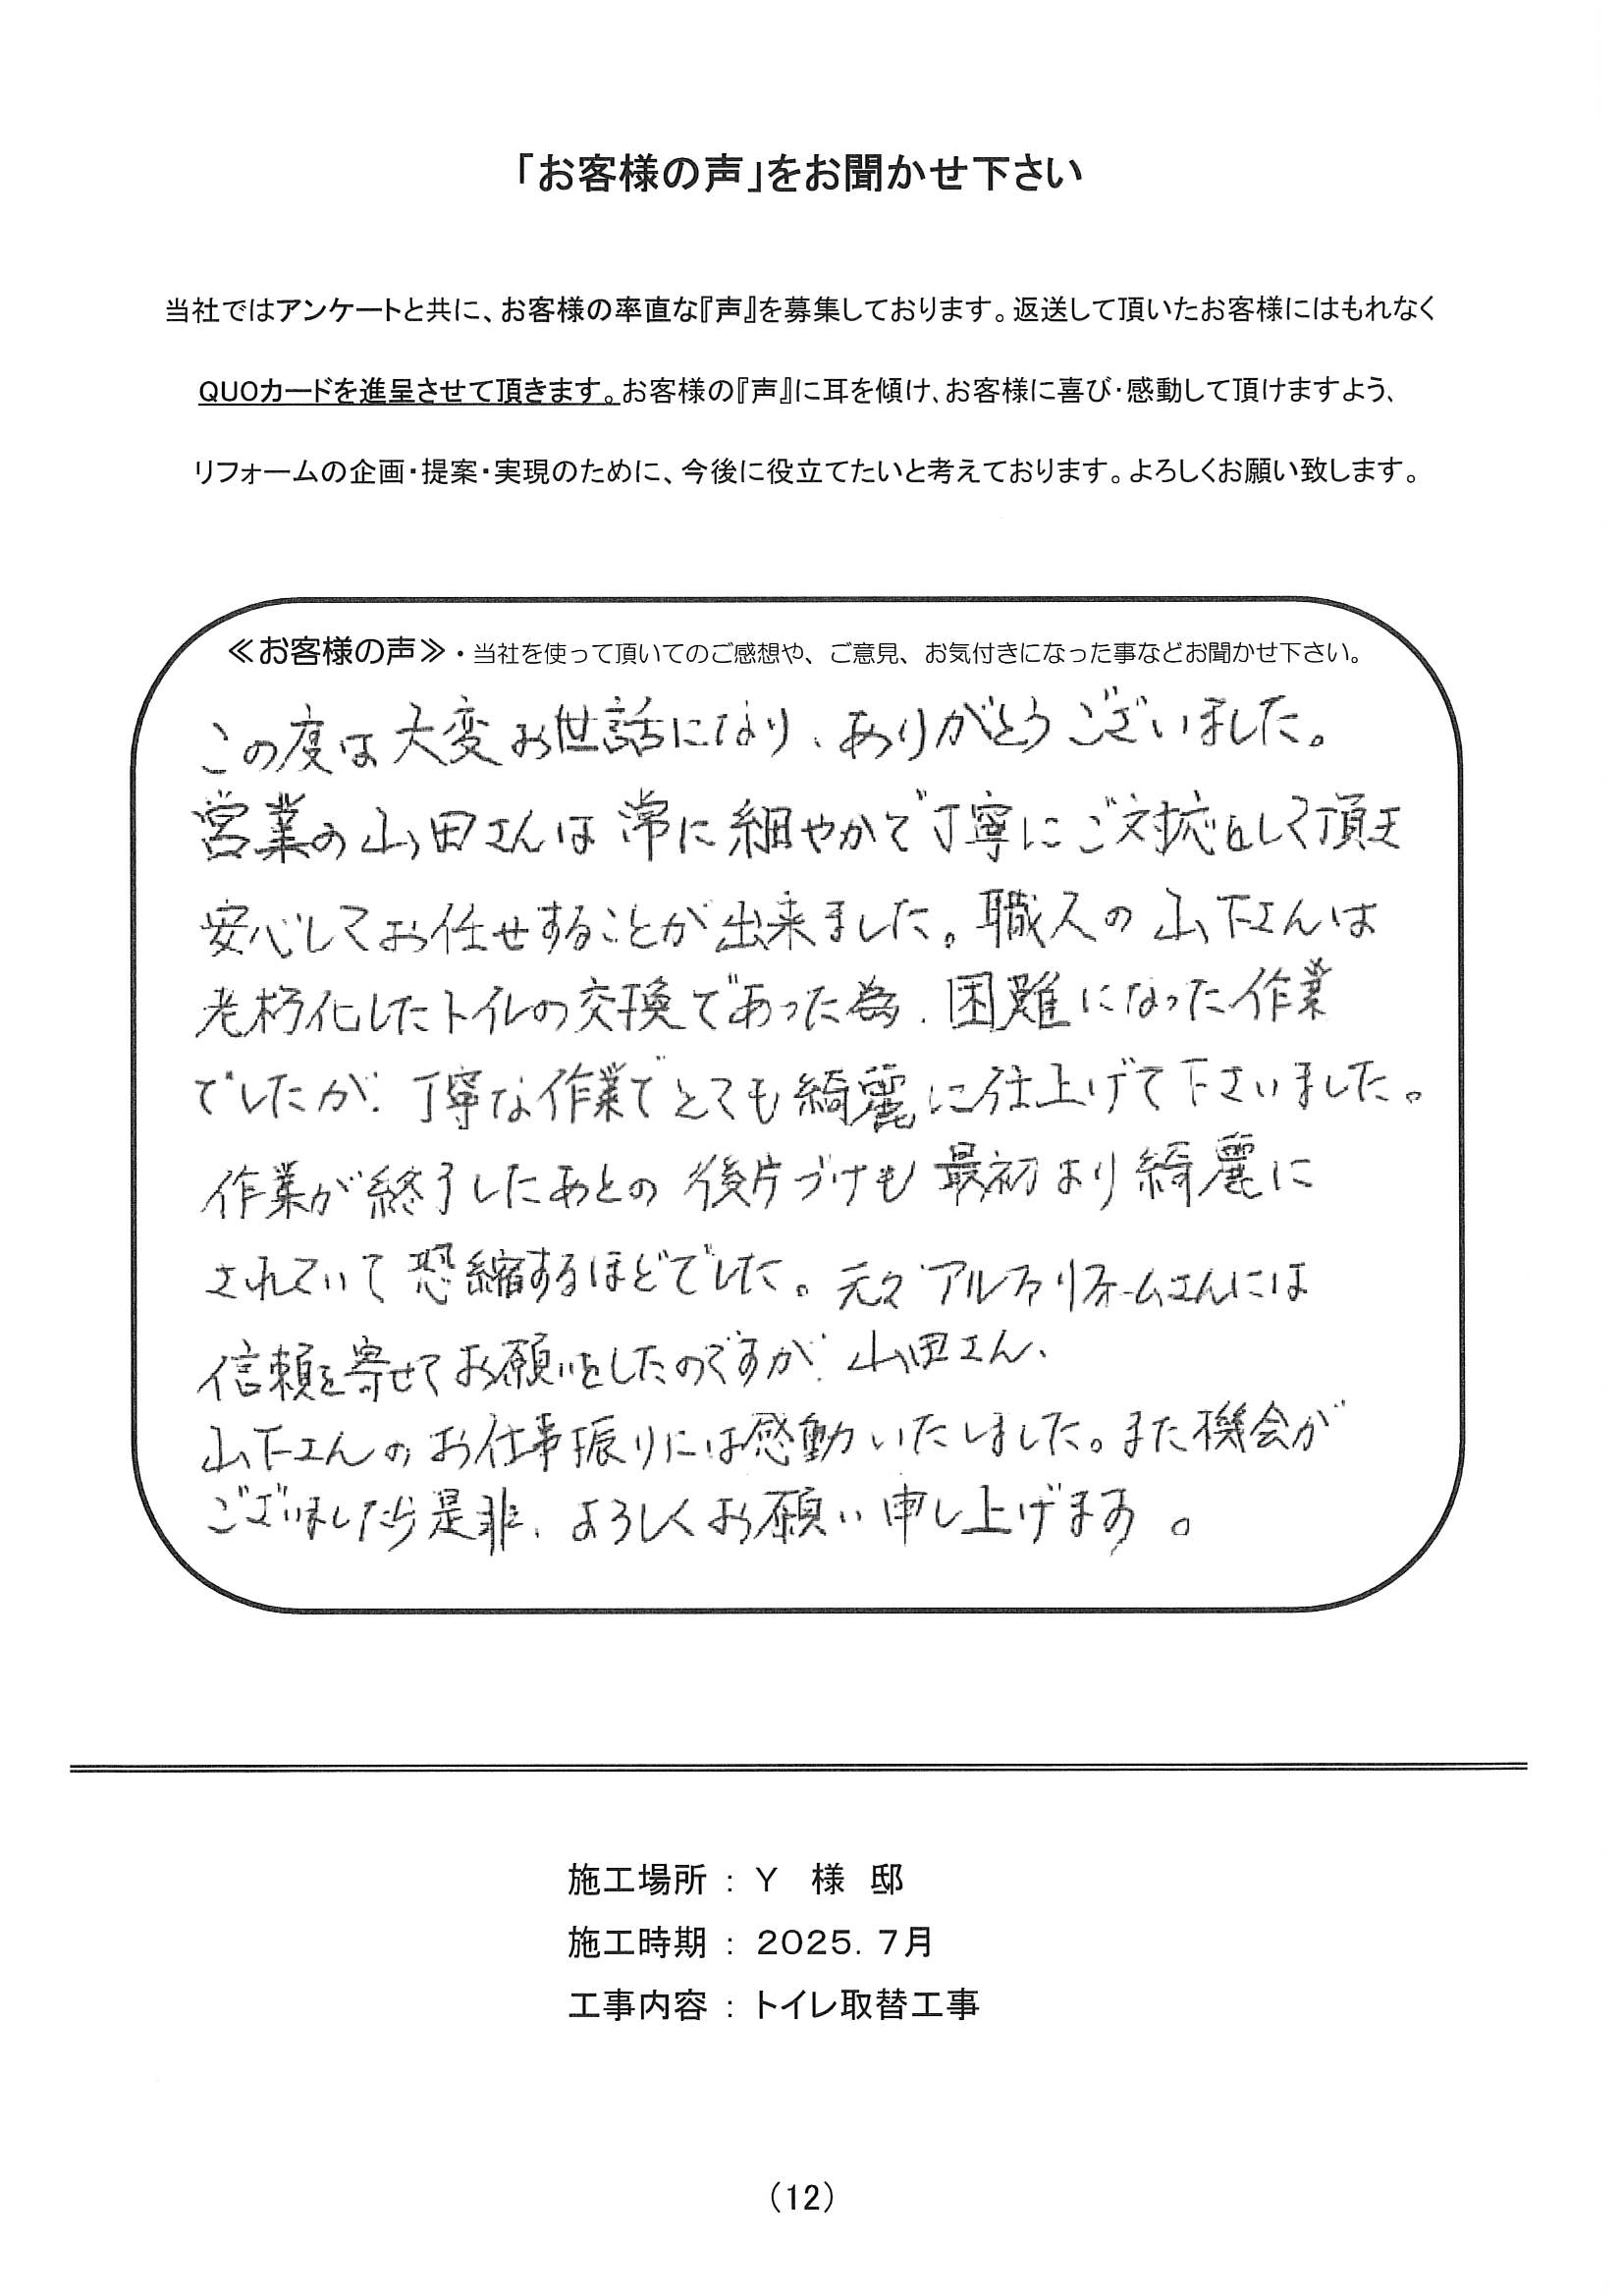 「お客様の声」をお聞かせ下さい
当社ではアンケートと共に、お客様の率直な『声』を募集しております。返送して頂いたお客様にはもれなく
QUOカードを進呈させて頂きます。お客様の『声』に耳を傾け、お客様に喜び・感動して頂けますよう、
リフォームの企画・提案・実現のために、今後に役立てたいと考えております。よろしくお願い致します。
≪お客様の声≫・当社を使って頂いてのご感想や、ご意見、お気付きになった事などお聞かせ下さい。
この度は大変お世話になり、ありがとうございました。
営業の山田さんは常に細やかで丁寧にご対応をして頂き
安心してお任せすることが出来ました。職人の山下さんは
老朽化したトイレの交換であった為、困難になった作業
でしたが、丁寧な作業でとても綺麗に仕上げて下さいました。
作業が終了したあとの後片づけも最初より綺麗に
されていて恐縮するほどでした。元々アルファリフォームさんには
信頼を寄せてお願いをしたのですが、山田さん、
山下さんのお仕事振りには感動いたしました。また機会が
ございましたら是非、よろしくお願い申し上げます。
施工場所 : Y 様 邸
施工時期 : 2025. 7月
工事内容 : トイレ取替工事
(12)